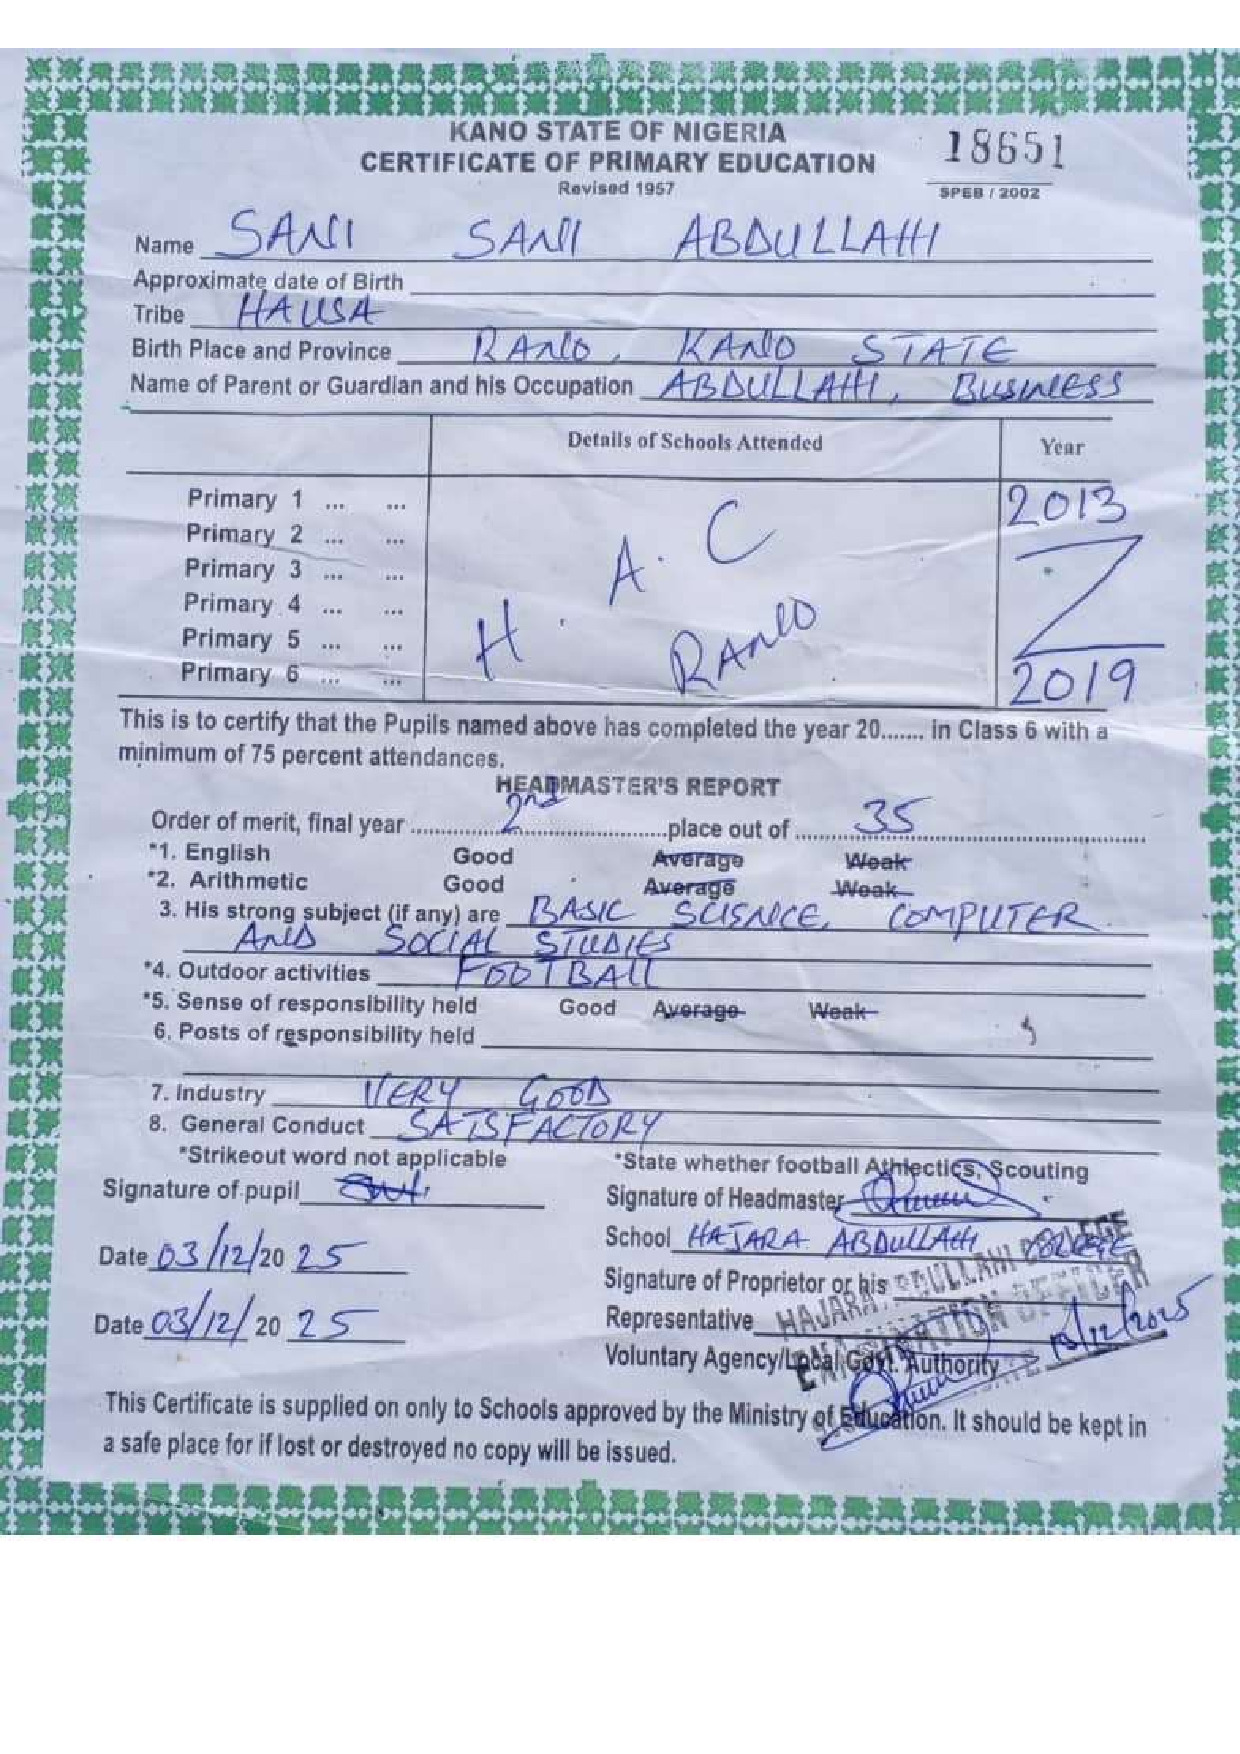 KANO STATE OF NIGERIA
CERTIFICATE OF PRIMARY EDUCATION
Revised 1957
18651
SPEB / 2002
Name SANI SANI ABDULLAHI
Approximate date of Birth
Tribe HAUSA
Birth Place and Province RANO, KANO STATE
Name of Parent or Guardian and his Occupation ABDULLAHI, BUSINESS
Details of Schools Attended Year
Primary 1 ... ... 2013
Primary 2 ... ...
Primary 3 ... ...
Primary 4 ... ...
Primary 5 ... ...
Primary 6 ... ... 2019
H. A. C
RANO
This is to certify that the Pupils named above has completed the year 20....... in Class 6 with a
minimum of 75 percent attendances.
HEADMASTER'S REPORT
Order of merit, final year 2nd place out of 35
*1. English Good Average Weak
*2. Arithmetic Good Average Weak
3. His strong subject (if any) are BASIC SCISNCE, COMPUTER
AND SOCIAL STUDIES
*4. Outdoor activities FOOTBALL
*5. Sense of responsibility held Good Average Weak
6. Posts of responsibility held
7. Industry VERY GOOD
8. General Conduct SATSFACTORY
*Strikeout word not applicable *State whether football Athlectics, Scouting
Signature of pupil
Signature of Headmaster
School HAJARA ABDULLAHI COLLEGE
Date 03/12/20 25
Signature of Proprietor or his
Date 03/12/20 25
Representative
Voluntary Agency/Local Govt. Authority
HAJARA ABDULLAHI COLLEGE
EXAMINATION OFFICER
DATE
This Certificate is supplied on only to Schools approved by the Ministry of Education. It should be kept in
a safe place for if lost or destroyed no copy will be issued.